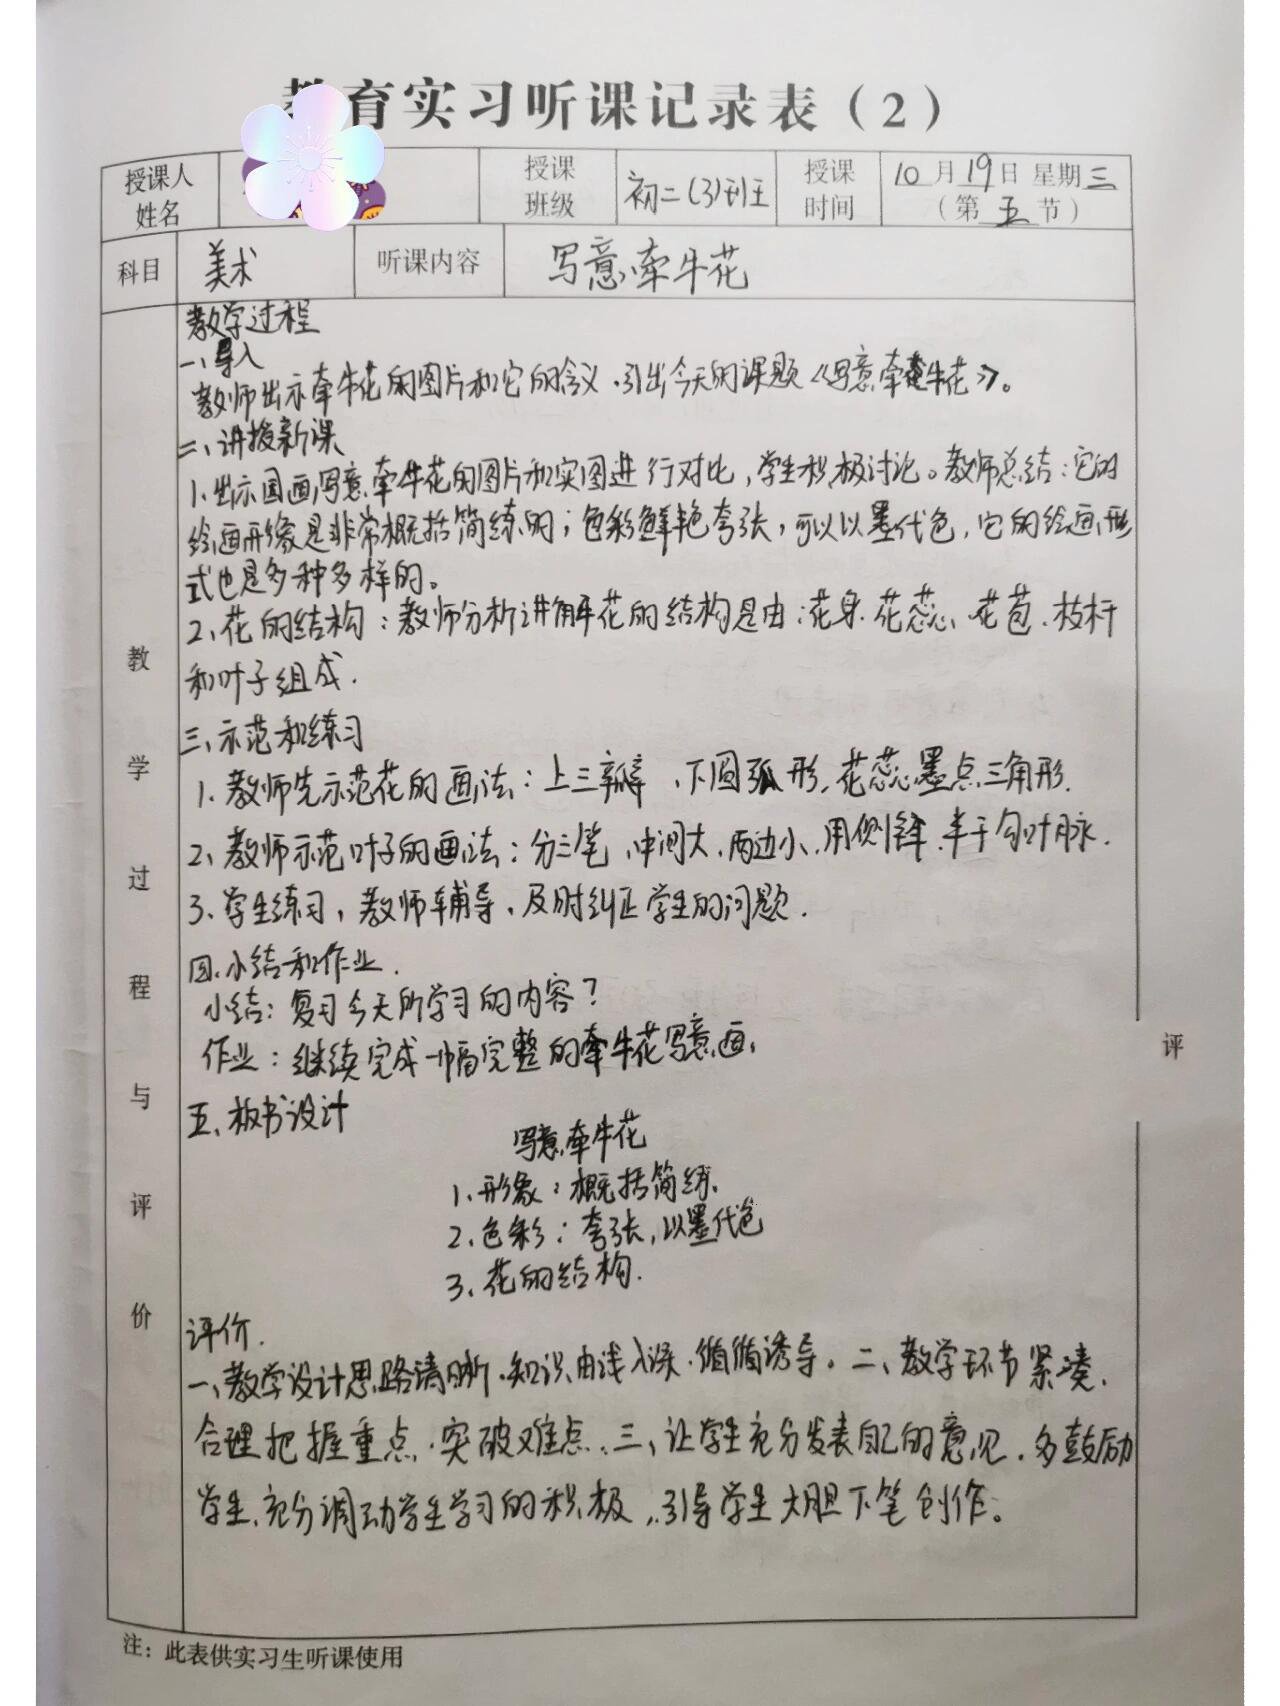 教育实习听课记录表（2）
授课人姓名 授课班级 初二(3)班 授课时间 10月19日 星期三（第五节）
科目 美术 听课内容 写意牵牛花
教学过程与评价
教学过程
一、导入
教师出示牵牛花的图片和它的含义.引出今天的课题《写意牵牛花》。
二、讲授新课
1、出示国画写意牵牛花的图片和实图进行对比，学生积极讨论。教师总结：它的
绘画形象是非常概括简练的；色彩鲜艳夸张，可以以墨代色，它的绘画形
式也是多种多样的。
2、花的结构：教师分析讲解花的结构是由：花身、花蕊、花苞、枝杆
和叶子组成.
三、示范和练习
1、教师先示范花的画法：上三瓣、下圆弧形,花蕊墨点三角形.
2、教师示范叶子的画法：分三笔、中间大、两边小、用侧锋、半干勾叶脉.
3、学生练习，教师辅导、及时纠正学生的问题.
四、小结和作业.
小结：复习今天所学习的内容?
作业：继续完成一幅完整的牵牛花写意画、
五、板书设计
写意牵牛花
1、形象：概括简练、
2、色彩：夸张，以墨代色
3、花的结构.
评价.
一、教学设计思路清晰.知识由浅入深.循循诱导。二、教学环节紧凑、
合理把握重点.突破难点、三、让学生充分发表自己的意见.多鼓励
学生、充分调动学生学习的积极，引导学生大胆下笔创作。
评
注：此表供实习生听课使用